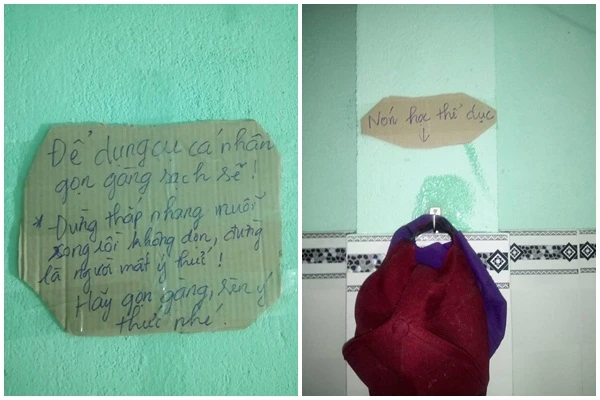 Để dụng cụ cá nhân
gọn gàng sạch sẽ!
* Đừng thắp nhang muỗi
xong rồi không dọn, đừng
là người mất ý thức!
Hãy gọn gàng, rèn ý
thức nhé!
Nón học thể dục
↓